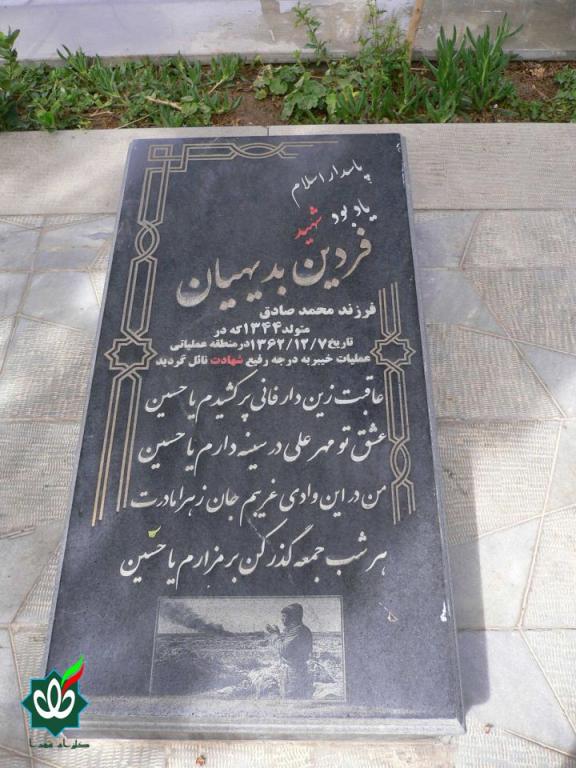 پاسدار اسلام
یادبود شهید
فردین بدیهیان
فرزند محمد صادق
متولد ۱۳۴۴ که در
تاریخ ۱۳۶۲/۱۲/۷ در منطقه عملیاتی
عملیات خیبر به درجه رفیع شهادت نائل گردید
عاقبت زین دار فانی پر کشیدم یا حسین
عشق تو مهر علی در سینه دارم یا حسین
من در این وادی غریبم جان زهرا مادرت
هر شب جمعه گذر کن بر مزارم یا حسین